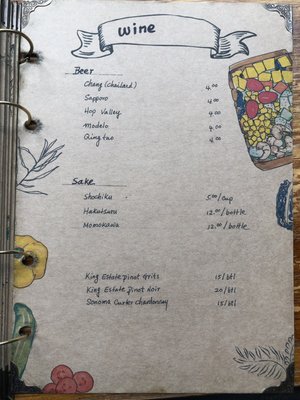 wine
Beer
Chang (Thailand) 4.00
Sapporo 4.00
Hop Valley 4.00
Modelo 4.00
Qingtao 4.00
Sake
Shochiku 5.00/cup
Hakutsuru 12.00/bottle
Momokawa 12.00/bottle
King Estate Pinot Grits 15/btl
King Estate Pinot Noir 20/btl
Sonoma Curter Chardonnay 15/btl